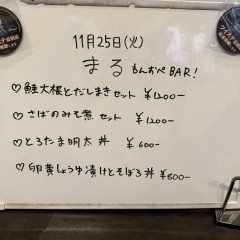 11月25日(火)
まる もんおぺBAR!
♡鮭大根とだしまきセット ¥1200-
♡さばのみそ煮セット ¥1200-
♡とろたま明太丼 ¥600-
♡卵黄しょうゆ漬けとそぼろ丼 ¥800-